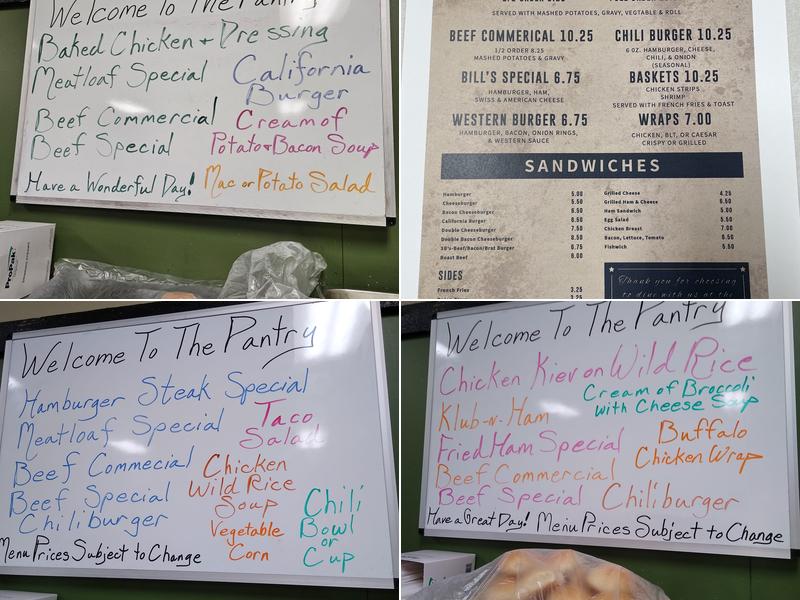 Welcome To The Pantry
Baked Chicken + Dressing
Meatloaf Special
California
Burger
Beef Commercial
Beef Special
Cream of
Potato & Bacon Soup
Have a Wonderful Day!
Mac or Potato Salad
ProPak
SERVED WITH MASHED POTATOES, GRAVY, VEGTABLE & ROLL
BEEF COMMERICAL 10.25
1/2 ORDER 8.25
MASHED POTATOES & GRAVY
CHILI BURGER 10.25
6 OZ. HAMBURGER, CHEESE,
CHILI, & ONION
(SEASONAL)
BILL'S SPECIAL 6.75
HAMBURGER, HAM,
SWISS & AMERICAN CHEESE
BASKETS 10.25
CHICKEN STRIPS
SHRIMP
SERVED WITH FRENCH FRIES & TOAST
WESTERN BURGER 6.75
HAMBURGER, BACON, ONION RINGS,
& WESTERN SAUCE
WRAPS 7.00
CHICKEN, BLT, OR CAESAR
CRISPY OR GRILLED
SANDWICHES
Hamburger 5.00
Cheeseburger 5.50
Bacon Cheeseburger 6.50
California Burger 6.50
Double Cheeseburger 7.50
Double Bacon Cheeseburger 8.50
Beef/Bacon/Brat Burger 6.75
Roast Beef 6.00
Grilled Cheese 4.25
Grilled Ham & Cheese 6.50
Ham Sandwich 5.00
Egg Salad 5.00
Chicken Breast 7.00
Bacon, Lettuce, Tomato 6.50
Fishwich 5.50
SIDES
French Fries 3.25
3.25
Thank you for choosing
to dine with us at the
Welcome To The Pantry
Hamburger Steak Special
Meatloaf Special
Taco
Salad
Beef Commecial
Beef Special
Chiliburger
Chicken
Wild Rice
Soup
Vegetable
Corn
Chili
Bowl
or
Cup
Menu Prices Subject to Change
Welcome To The Pantry
Chicken Kiev on Wild Rice
Cream of Broccoli
with Cheese Soup
Klub-n-Ham
Fried Ham Special
Buffalo
Chicken Wrap
Beef Commercial
Beef Special
Chiliburger
Have a Great Day!
Menu Prices Subject to Change